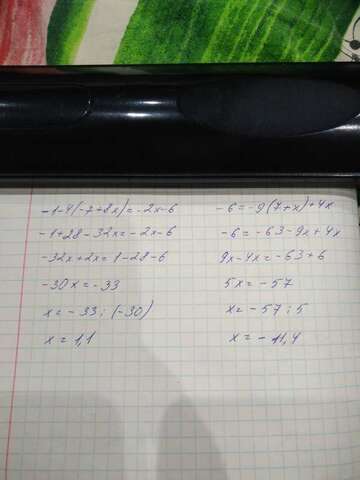 -1-4(-7+8x)=-2x-6
-1+28-32x=-2x-6
-32x+2x=1-28-6
-30x=-33
x=-33:(-30)
x=1,1
-6=-9(7+x)+4x
-6=-63-9x+4x
9x-4x=-63+6
5x=-57
x=-57:5
x=-11,4